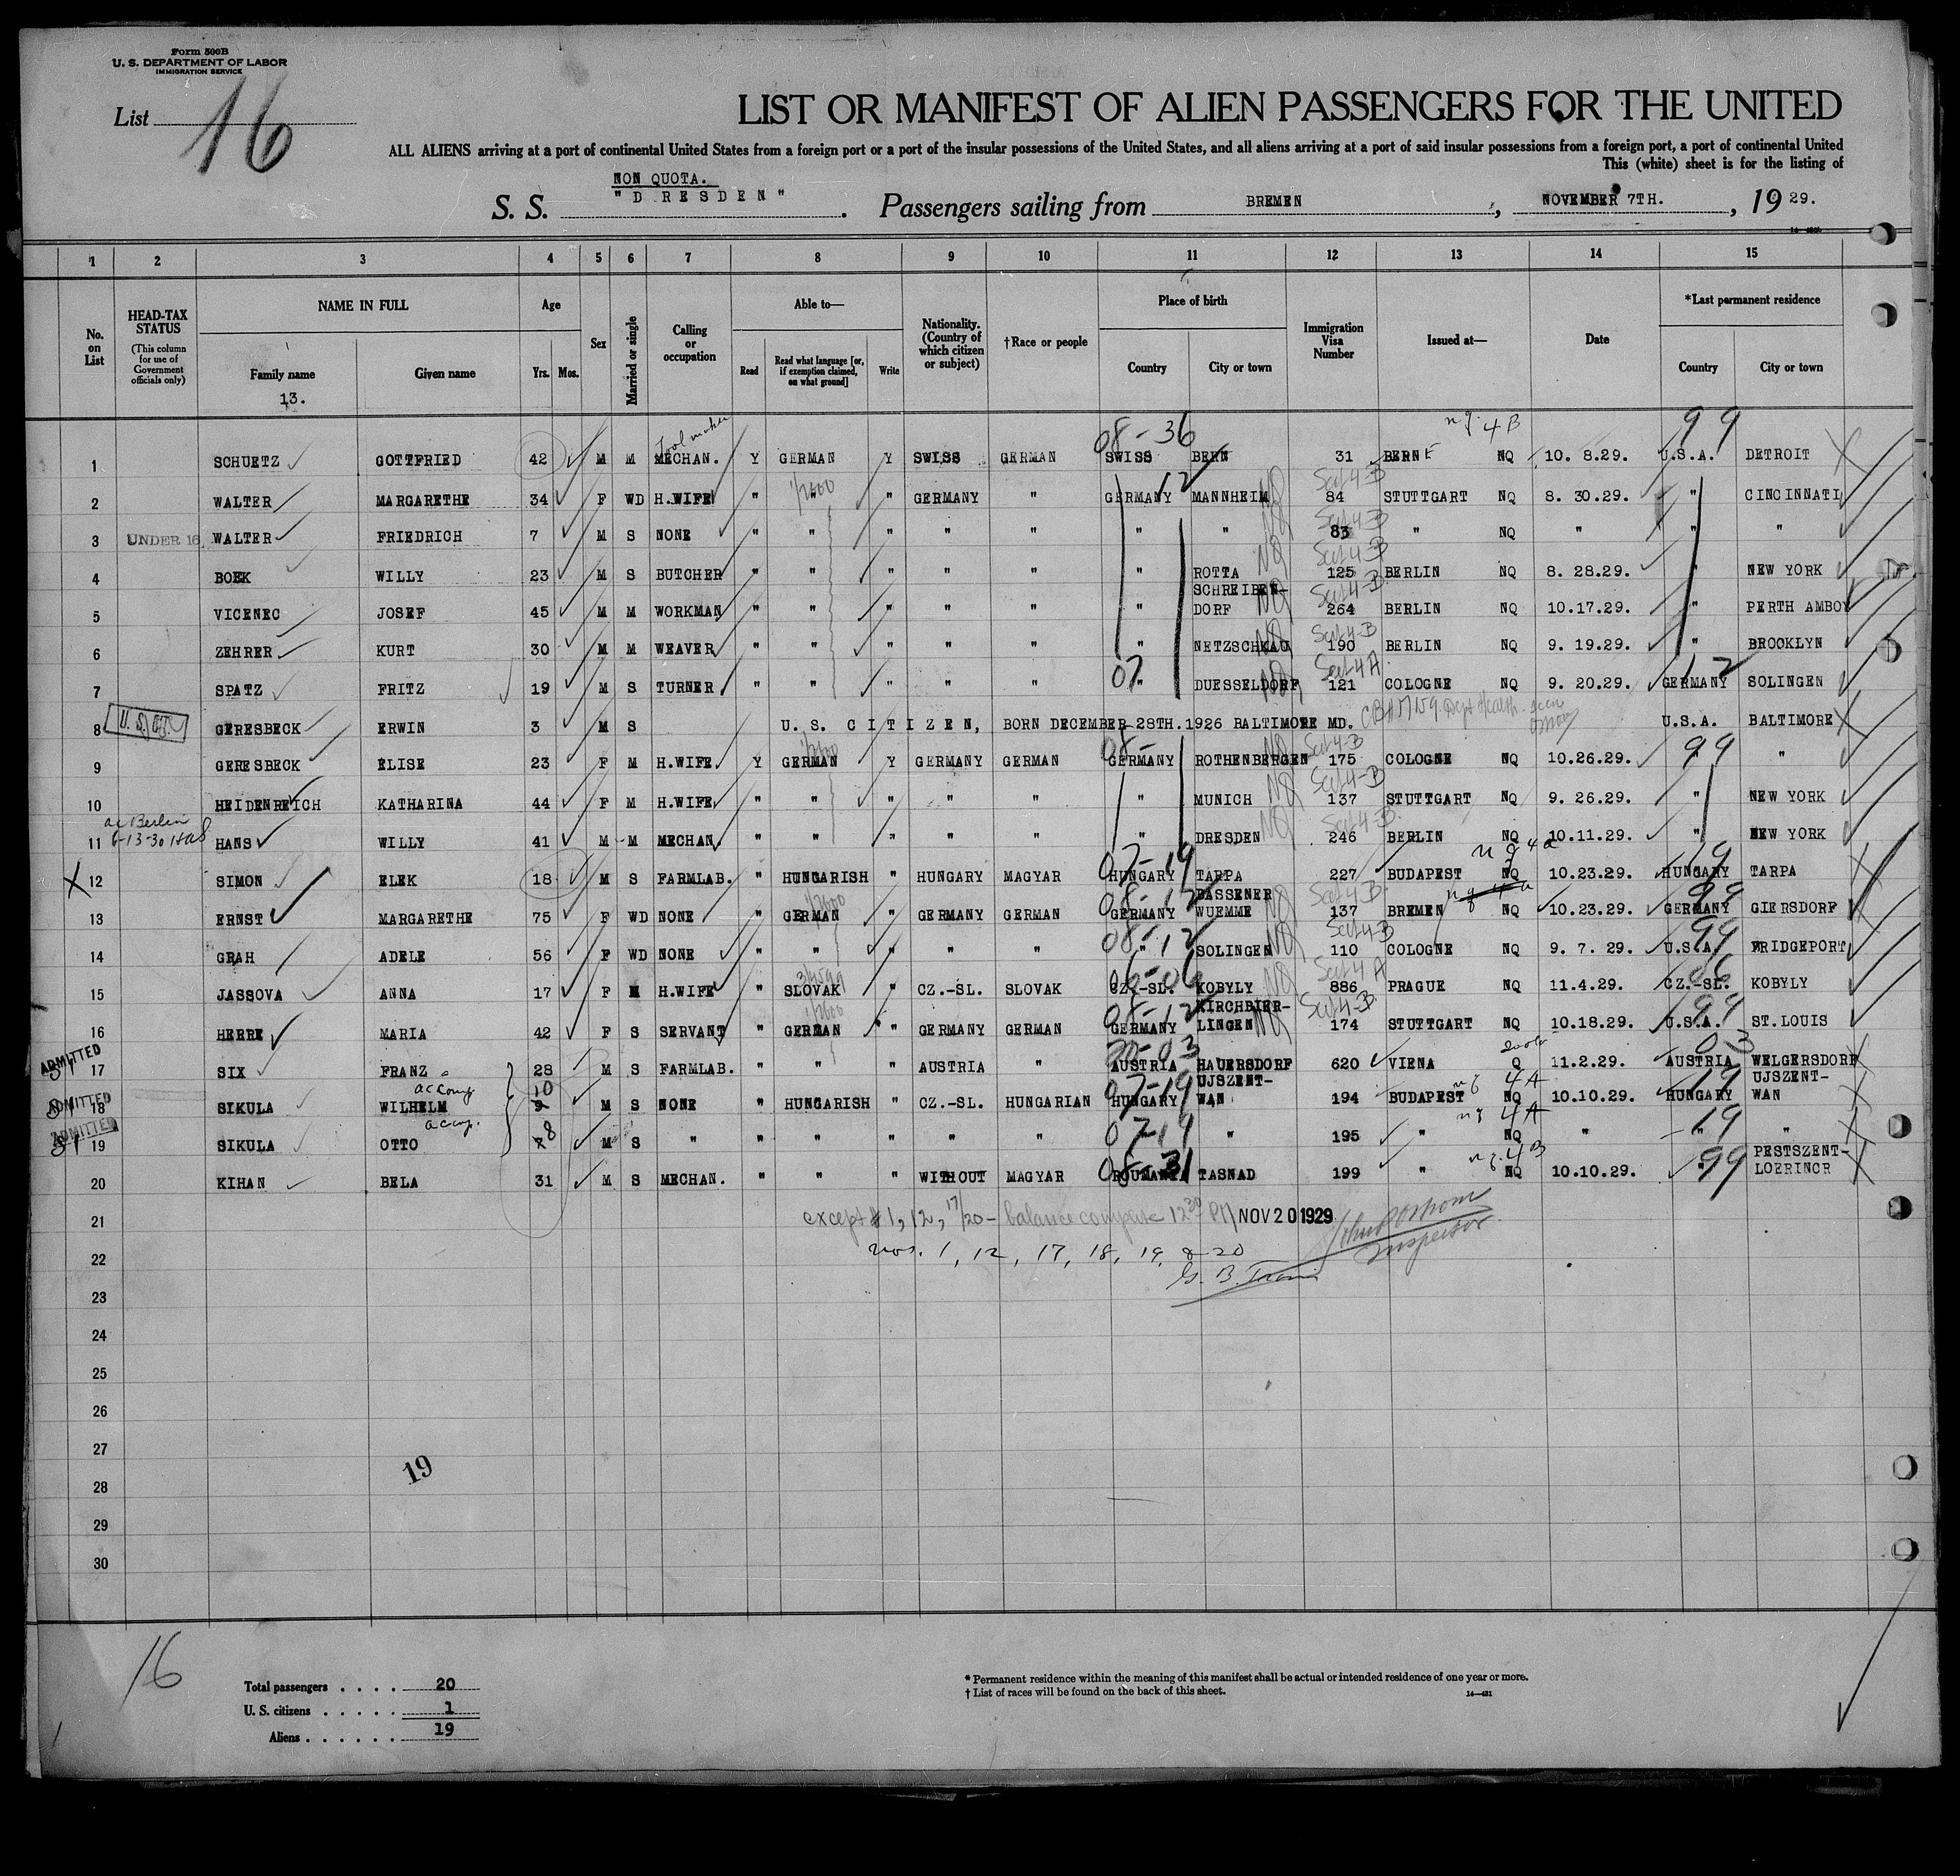 Form 500B
U. S. DEPARTMENT OF LABOR
IMMIGRATION SERVICE
List 16
LIST OR MANIFEST OF ALIEN PASSENGERS FOR THE UNITED
ALL ALIENS arriving at a port of continental United States from a foreign port or a port of the insular possessions of the United States, and all aliens arriving at a port of said insular possessions from a foreign port, a port of continental United
This (white) sheet is for the listing of
NON QUOTA.
S. S. "DRESDEN". Passengers sailing from BREMEN, NOVEMBER 7TH., 1929.
1 2 3 4 5 6 7 8 9 10 11 12 13 14 15
No. on List
HEAD-TAX STATUS (This column for use of Government officials only)
NAME IN FULL Family name Given name
13.
Age Yrs. Mos.
Sex
Married or single
Calling or occupation
Able to— Read Read what language [or, if exemption claimed, on what ground] Write
Nationality. (Country of which citizen or subject)
†Race or people
Place of birth Country City or town
Immigration Visa Number
Issued at—
Date
*Last permanent residence Country City or town
Tool maker 08-36 nq 4B 99
1 SCHUETZ GOTTFRIED 42 M M MECHAN. Y GERMAN Y SWISS GERMAN SWISS BERN 31 BERNE NQ 10. 8.29. U.S.A. DETROIT
1/2600 12 NQ Sect 4-B
2 WALTER MARGARETHE 34 F WD H.WIFE " " " GERMANY " GERMANY MANNHEIM 84 STUTTGART NQ 8. 30.29. " CINCINNATI
NQ Sect 4-B
3 UNDER 16 WALTER FRIEDRICH 7 M S NONE " " " " " " " 83 " NQ " " "
NQ Sect 4-B
4 BOEK WILLY 23 M S BUTCHER " " " " " " ROTTA 125 BERLIN NQ 8. 28.29. " NEW YORK
NQ Sect 4-B
5 VICENEC JOSEF 45 M M WORKMAN " " " " " " SCHREIBEN-DORF 264 BERLIN NQ 10.17.29. " PERTH AMBOY
NQ Sect 4-B
6 ZEHRER KURT 30 M M WEAVER " " " " " " NETZSCHKAU 190 BERLIN NQ 9. 19.29. " BROOKLYN
07 NQ Sect 4 A 12
7 SPATZ FRITZ 19 M S TURNER " " " " " " DUESSELDORF 121 COLOGNE NQ 9. 20.29. GERMANY SOLINGEN
8 U. S. CIT. GERESBECK ERWIN 3 M S U. S. CITIZEN, BORN DECEMBER 28TH.1926 BALTIMORE MD. U.S.A. BALTIMORE
1/2600 08- NQ Sect 4-B 99
9 GERESBECK ELISE 23 F M H.WIFE Y GERMAN Y GERMANY GERMAN GERMANY ROTHENBERGEN 175 COLOGNE NQ 10.26.29. "
NQ Sect 4-B
10 HEIDENREICH KATHARINA 44 F M H.WIFE " " " " " " MUNICH 137 STUTTGART NQ 9. 26.29. " NEW YORK
NQ Sect 4-B
11 HANS WILLY 41 M M MECHAN. " " " " " DRESDEN 246 BERLIN NQ 10.11.29. " NEW YORK
07-19 nq 4a 19
X 12 SIMON ELEK 18 M S FARMLAB. " HUNGARISH " HUNGARY MAGYAR HUNGARY TARPA 227 BUDAPEST NQ 10.23.29. HUNGARY TARPA
1/2600 08-12 NQ Sect 4-B nq 4a 99
13 ERNST MARGARETHE 75 F WD NONE " GERMAN " GERMANY GERMAN GERMANY BASSENER WUEMME 137 BREMEN NQ 10.23.29. GERMANY GIERSDORF
08-12 NQ Sect 4-B 99
14 GRAH ADELE 56 F WD NONE " " " " " " SOLINGEN 110 COLOGNE NQ 9. 7. 29. U.S.A. BRIDGEPORT
06-06 NQ Sect 4 A 06
15 JASSOVA ANNA 17 F M H.WIFE " SLOVAK " CZ.-SL. SLOVAK CZ.-SL. KOBYLY 886 PRAGUE NQ 11.4.29. CZ.-SL. KOBYLY
1/2600 08-12 NQ Sect 4-B 99
16 HERRE MARIA 42 F S SERVANT " GERMAN " GERMANY GERMAN GERMANY KIRCHBIER-LINGEN 174 STUTTGART NQ 10.18.29. U.S.A. ST.LOUIS
20-03 03
ADMITTED 17 SIX FRANZ 28 M S FARMLAB. " " " AUSTRIA " AUSTRIA HAUERSDORF 620 VIENA Q 11.2.29. AUSTRIA WELGERSDORF
accomp 10 07-19 nq 4A 19
ADMITTED 18 SIKULA WILHELM 9 M S NONE " HUNGARISH " CZ.-SL. HUNGARIAN HUNGARY UJSZENT-WAN 194 BUDAPEST NQ 10.10.29. HUNGARY UJSZENT-WAN
accomp. 8 07-19 nq 4A 19
ADMITTED 19 SIKULA OTTO 7 M S " " " " " " " 195 " NQ " " "
08-31 nq 4B 99
20 KIHAN BELA 31 M S MECHAN. " " " WITHOUT MAGYAR ROUMANIA TASNAD 199 " NQ 10.10.29. PESTSZENT-LOERINCR
21 except # 1, 12, 17/20 - balance complete 12 30 PM NOV 20 1929 Inspector
22 nos. 1, 12, 17, 18, 19, & 20
23
24
25
26
27
28
29
30
19
16
Total passengers . . . . 20
U. S. citizens . . . . . 1
Aliens . . . . . . 19
* Permanent residence within the meaning of this manifest shall be actual or intended residence of one year or more.
† List of races will be found on the back of this sheet.